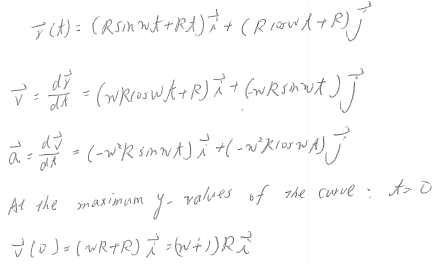 r⃗(t) = (R sin wt + Rt) i⃗ + (R cos wt + R) j⃗
v⃗ = dr⃗/dt = (wR cos wt + R) i⃗ + (-wR sin wt) j⃗
a⃗ = dv⃗/dt = (-w²R sin wt) i⃗ + (-w²R cos wt) j⃗
At the maximum y-values of the curve : t = 0
v⃗(0) = (wR + R) i⃗ = (w+1) R i⃗